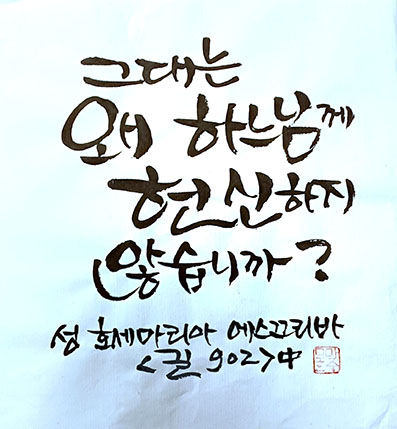 그대는
왜 하느님께
헌신하지
않습니까?
성 호세마리아 에스끄리바
<길 902>中